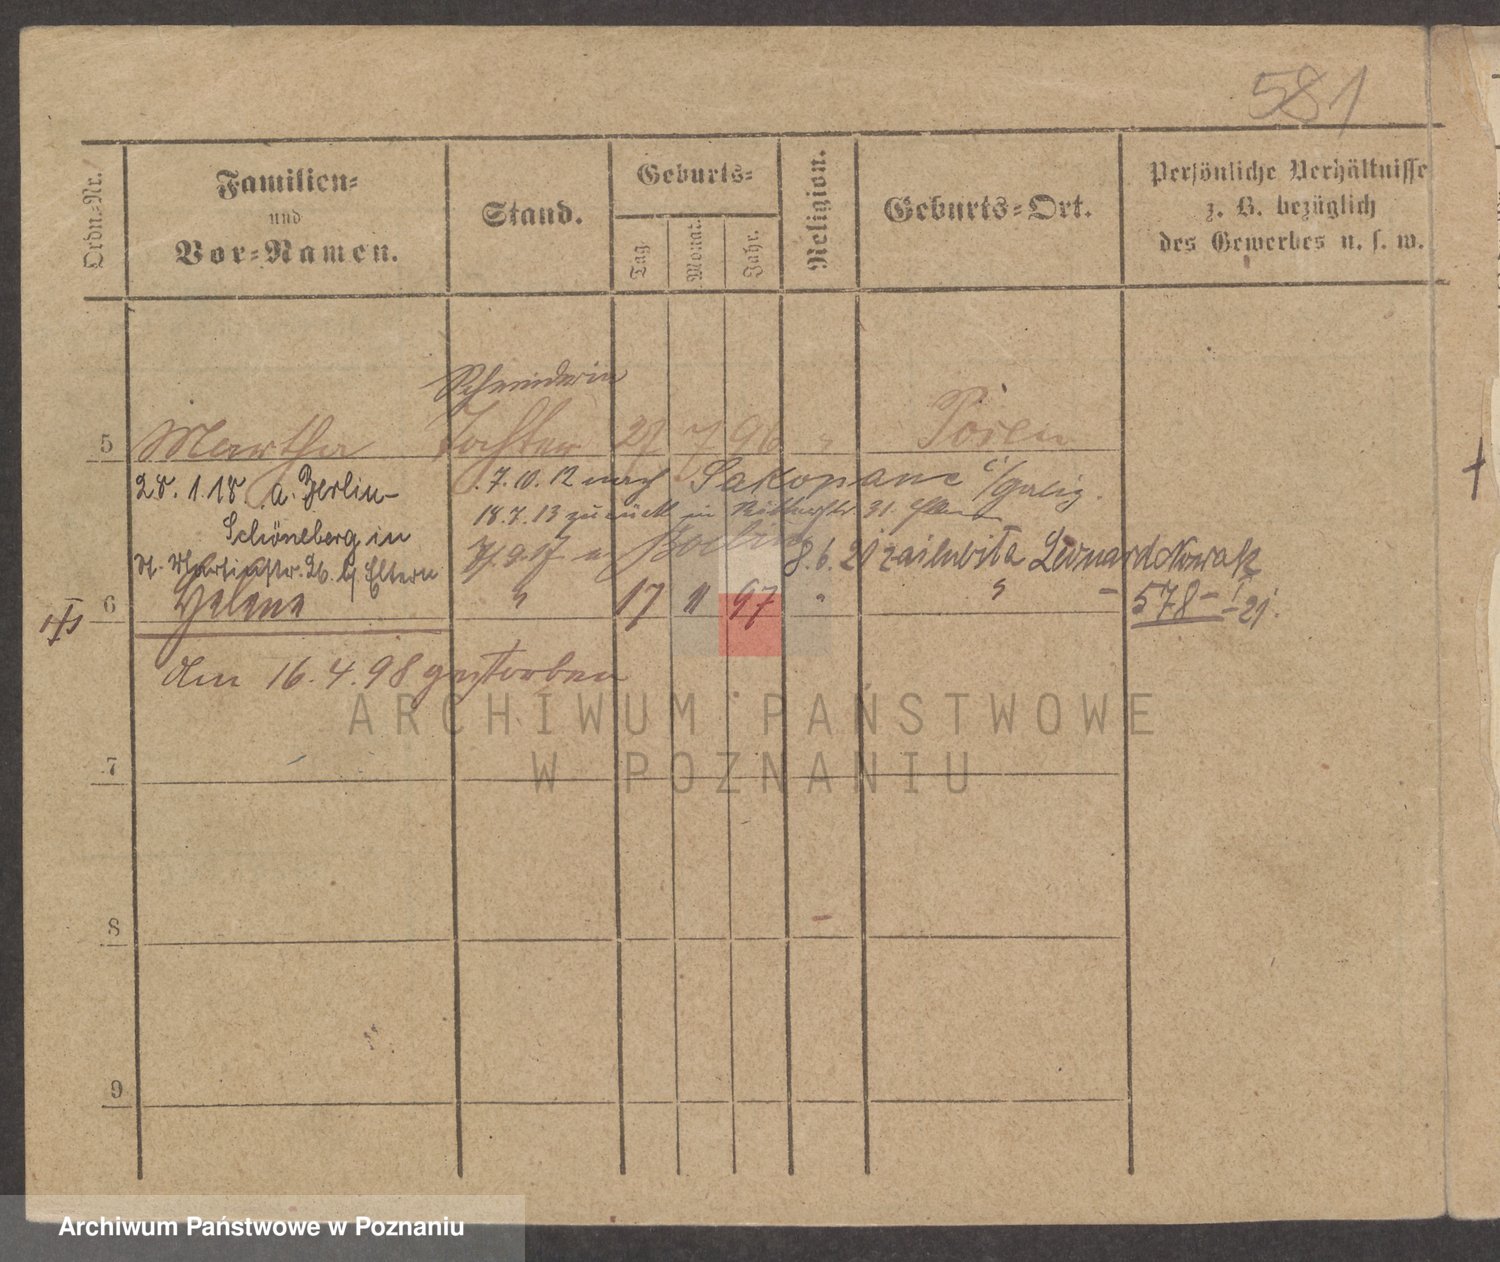 581
Ordn.-Nr.
Familien-
und
Vor-Namen.
Stand.
Geburts-
Tag
Monat.
Jahr.
Religion.
Geburts-Ort.
Persönliche Verhältnisse
z. B. bezüglich
des Gewerbes u. s. w.
Schneiderin
5 Martha Tochter 27 7 96 " Posen
28. 1. 18 a. Berlin-
Schöneberg in
St. Martinstr. 26. b/ Eltern
7. 10. 12 nach Sakopane i/Galiz.
18. 7. 13 zurück in 31.
Berlin
8. 6. 21 zaślubiła Leonard Nowak
6 Helene " 17 11 97 " " - 578 - I - 21.
Am 16. 4. 98 gestorben
7
8
9
ARCHIWUM PAŃSTWOWE
W POZNANIU
Archiwum Państwowe w Poznaniu